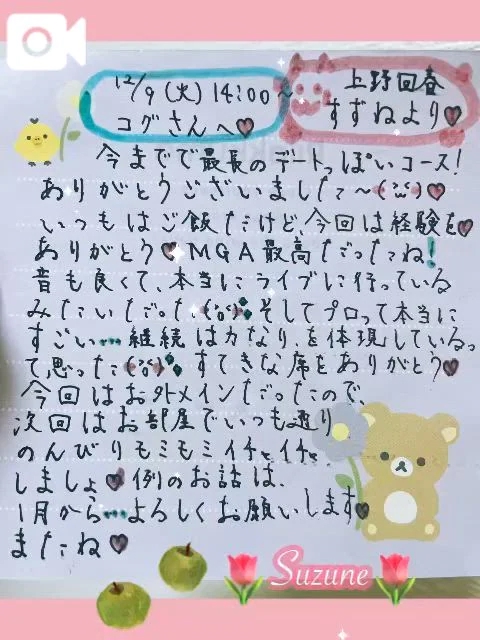 12/9(火)14:00~
コグさんへ♥
上野回春
すずねより♥
今までで最長のデートっぽいコース!
ありがとうございました〜(¨̮)♥
いつもはご飯だけど、今回は経験を♥
ありがとう♥MGA最高だったね!
音も良くて、本当にライブに行っている
みたいだった。そしてプロって本当に
すごい…継続は力なり、を体現している。
て思った すてきな席をありがとう♥
今回はお外メインだったので、
次回はお部屋でいつも通り
のんびりモミモミイチャイチャ
しましょ♥例のお話は、
1月から…よろしくお願いします♥
またね♥
Suzune